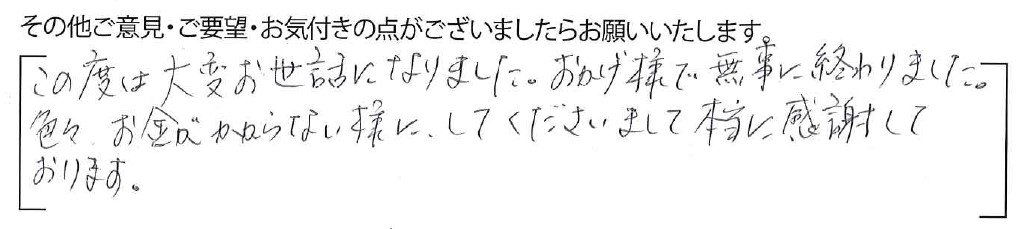 その他ご意見・ご要望・お気付きの点がございましたらお願いいたします。
この度は大変お世話になりました。おかげ様で無事に終わりました。
色々、お金がかからない様に、してくださいまして本当に感謝して
おります。